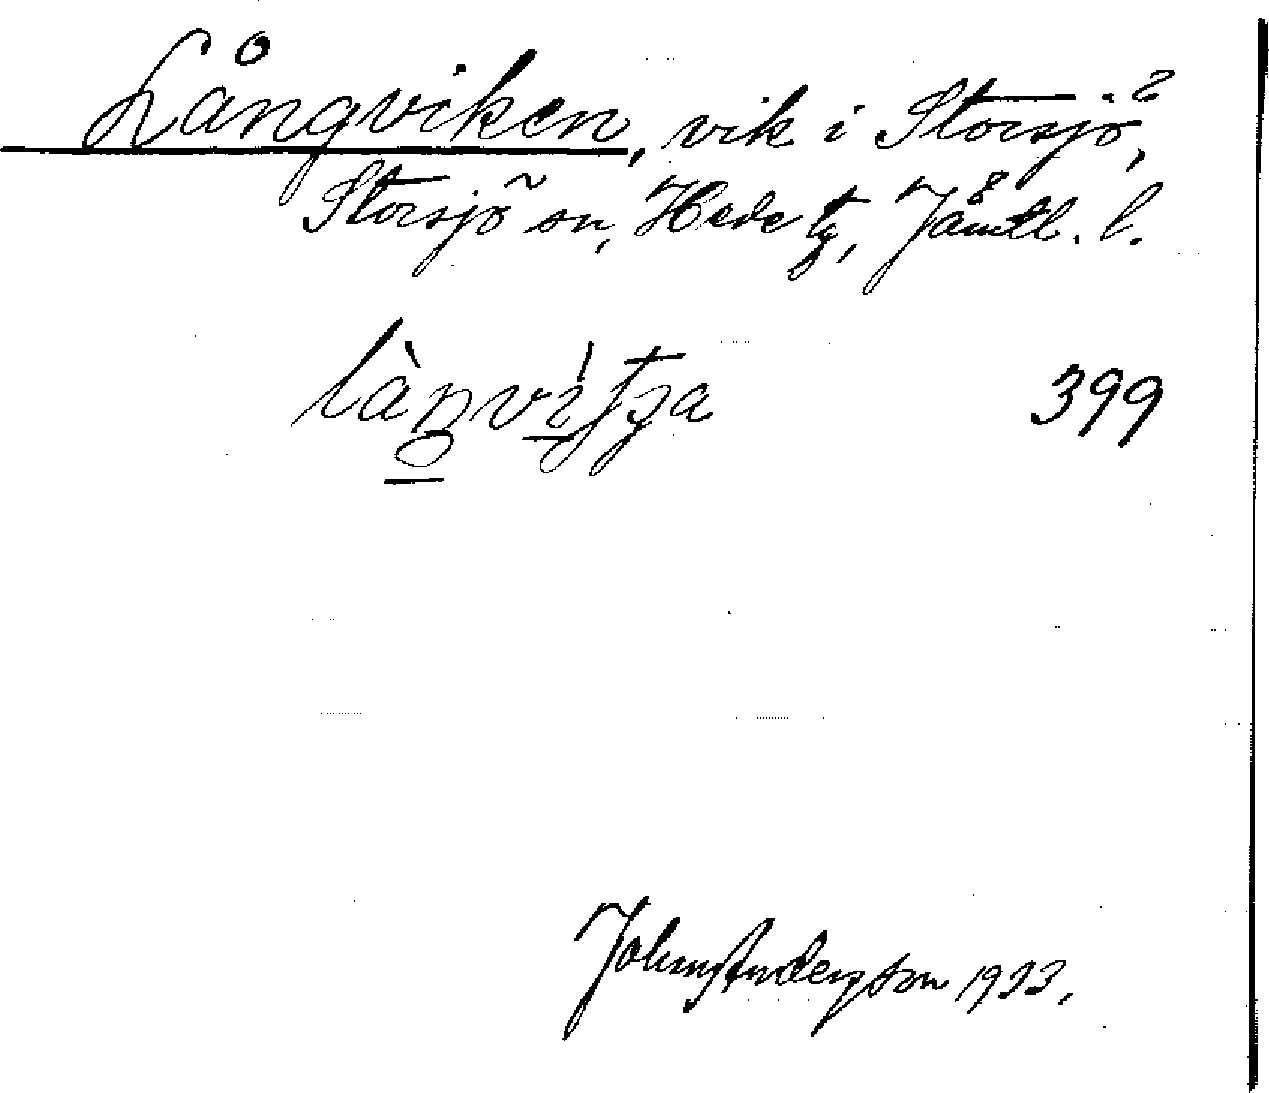 Långviken, vik i Storsjö,
Storsjö sn, Hede tg, Jämtl. l.
399
John Anderson 1933.